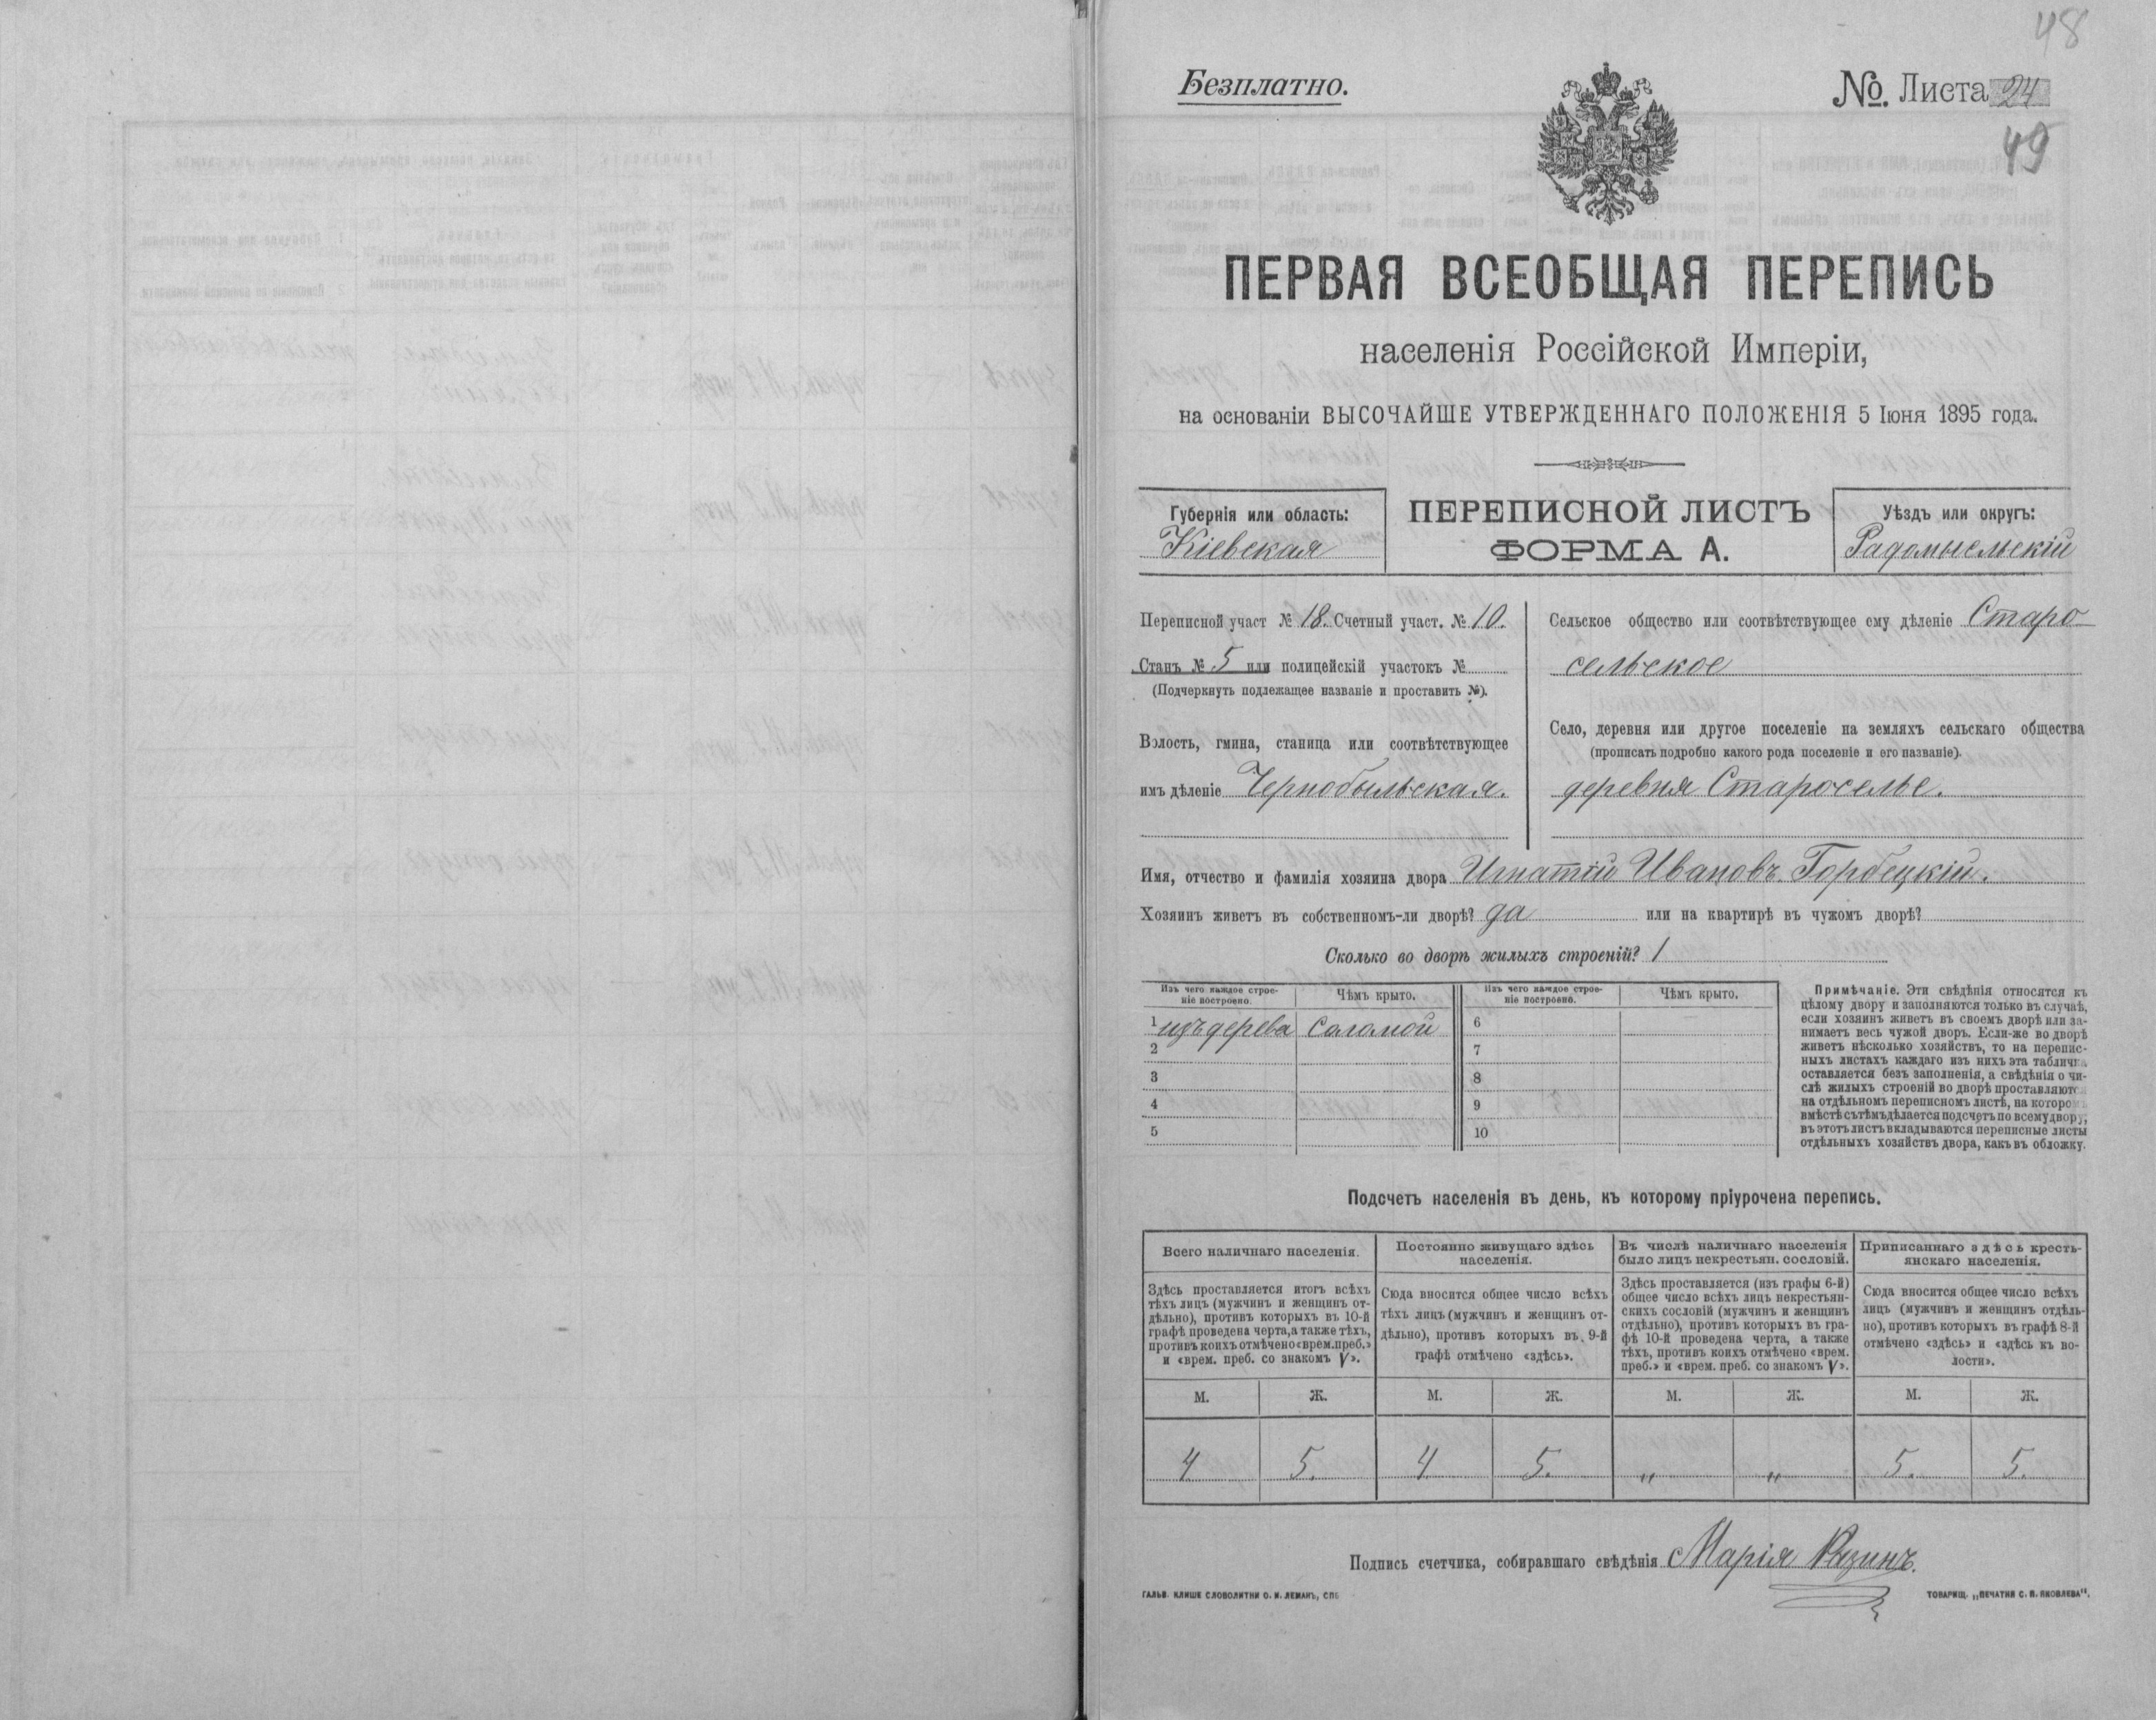 48
Безплатно.
№. Листа 24
49
ПЕРВАЯ ВСЕОБЩАЯ ПЕРЕПИСЬ
населенія Россійской Имперіи,
на основаніи ВЫСОЧАЙШЕ УТВЕРЖДЕННАГО ПОЛОЖЕНІЯ 5 Іюня 1895 года.
Губернія или область:
Кіевская
ПЕРЕПИСНОЙ ЛИСТЪ
ФОРМА А.
Уѣздъ или округъ:
Радомысльскій
Переписной участ № 18. Счетный участ. № 10.
Станъ № 5 или полицейскій участокъ №
(Подчеркнуть подлежащее названіе и проставить №).
Волость, гмина, станица или соотвѣтствующее
имъ дѣленіе Чернобыльская.
Сельское общество или соотвѣтствующее ему дѣленіе Старо-
сельское
Село, деревня или другое поселеніе на земляхъ сельскаго общества
(прописать подробно какого рода поселеніе и его названіе).
деревня Староселье.
Имя, отчество и фамилія хозяина двора Игнатій Ивановъ Горбецкій.
Хозяинъ живетъ въ собственномъ-ли дворѣ? да или на квартирѣ въ чужомъ дворѣ?
Сколько во дворѣ жилыхъ строеній? 1
Изъ чего каждое строе-
ніе построено.
Чѣмъ крыто.
Изъ чего каждое строе-
ніе построено.
Чѣмъ крыто.
1 изъ дерева соломой 6
2 7
3 8
4 9
5 10
Примѣчаніе. Эти свѣдѣнія относятся къ
цѣлому двору и заполняются только въ случаѣ,
если хозяинъ живетъ въ своемъ дворѣ или за-
нимаетъ весь чужой дворъ. Если-же во дворѣ
живетъ нѣсколько хозяйствъ, то на перепис-
ныхъ листахъ каждаго изъ нихъ эта табличка
оставляется безъ заполненія, а свѣдѣнія о чи-
слѣ жилыхъ строеній во дворѣ проставляются
на отдѣльномъ переписномъ листѣ, на которомъ
вмѣстѣ съ тѣмъ дѣлается подсчетъ по всему двору;
въ этотъ листъ вкладываются переписные листы
отдѣльныхъ хозяйствъ двора, какъ въ обложку.
Подсчетъ населенія въ день, къ которому пріурочена перепись.
Всего наличнаго населенія.
Здѣсь проставляется итогъ всѣхъ
тѣхъ лицъ (мужчинъ и женщинъ от-
дѣльно), противъ которыхъ въ 10-й
графѣ проведена черта, а также тѣхъ,
противъ коихъ отмѣчено «врем. преб.»
и «врем. преб. со знакомъ V».
Постоянно живущаго здѣсь
населенія.
Сюда вносится общее число всѣхъ
тѣхъ лицъ (мужчинъ и женщинъ от-
дѣльно), противъ которыхъ въ 9-й
графѣ отмѣчено «здѣсь».
Въ числѣ наличнаго населенія
было лицъ некрестьян. сословій.
Здѣсь проставляется (изъ графы 6-й)
общее число всѣхъ лицъ некрестьян-
скихъ сословій (мужчинъ и женщинъ
отдѣльно), противъ которыхъ въ гра-
фѣ 10-й проведена черта, а также
тѣхъ, противъ коихъ отмѣчено «врем.
преб.» и «врем. преб. со знакомъ V».
Приписаннаго здѣсь кресть-
янскаго населенія.
Сюда вносится общее число всѣхъ
лицъ (мужчинъ и женщинъ отдѣль-
но), противъ которыхъ въ графѣ 8-й
отмѣчено «здѣсь» и «здѣсь къ во-
лости».
М. Ж. М. Ж. М. Ж. М. Ж.
4 5. 4 5. „ „ 5. 5.
Подпись счетчика, собиравшаго свѣдѣнія Марія
ГАЛЬВ. КЛИШЕ СЛОВОЛИТНИ О. И. ЛЕМАНЪ, СПБ
ТОВАРИЩ. „ПЕЧАТНЯ С. П. ЯКОВЛЕВА".